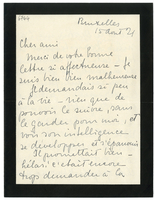 Bruxelles
15 août 21
Cher ami
Merci de votre bonne
lettre si affectueuse – Je
suis bien bien malheureux
Je demandais si peu
à la vie – rien que de
pouvoir le suivre, sans
le garder pour moi, et
voir son intelligence
se développer et s'épanouir
Il promettait bien
hélas! c'était encore
trop demander à la